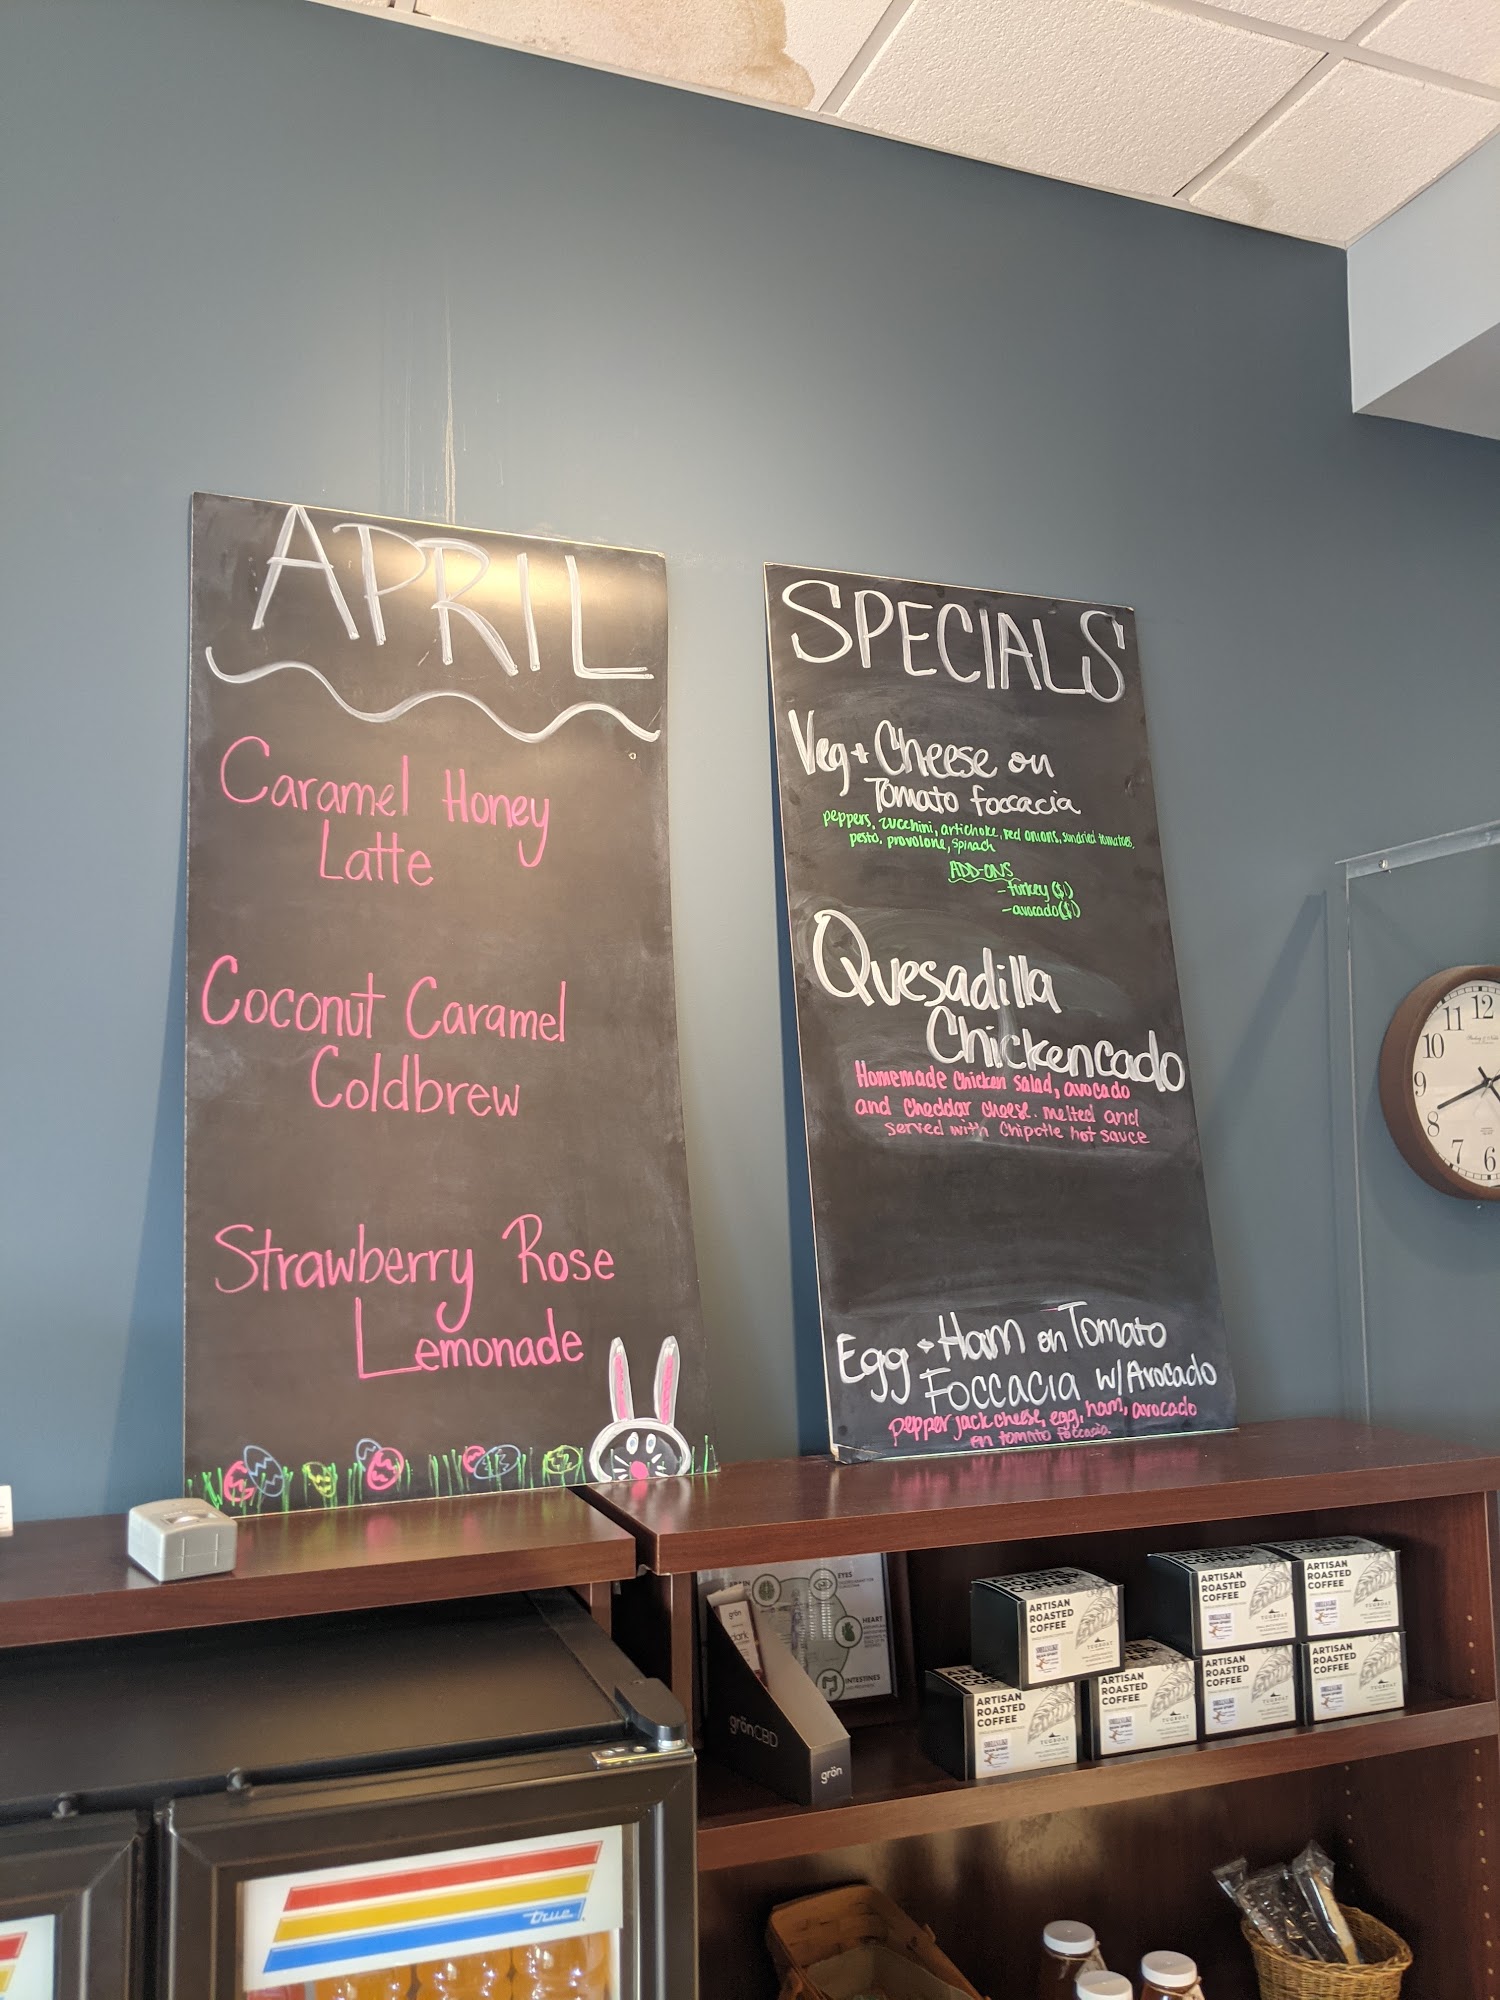 APRIL
Caramel Honey
Latte
Coconut Caramel
Coldbrew
Strawberry Rose
Lemonade
SPECIALS
Veg + Cheese on
Tomato foccacia
peppers, zucchini, artichoke, red onions, sundried tomatoes,
pesto, provolone, spinach
ADD-ONS
- turkey ($1)
- avocado ($1)
Quesadilla
Chickencado
Homemade Chicken salad, avocado
and Cheddar cheese. melted and
served with Chipotle hot sauce
Egg + Ham on Tomato
Foccacia w/ Avocado
pepper jack cheese, egg, ham, avocado
on tomato foccacia
12
11
10
9
8
7
6
EYES
HEART
INTESTINES
grön
dark
grönCBD
grön
ARTISAN
ROASTED
COFFEE
TUGBOAT
ARTISAN
ROASTED
COFFEE
TUGBOAT
ARTISAN
ROASTED
COFFEE
TUGBOAT
ARTISAN
ROASTED
COFFEE
TUGBOAT
ARTISAN
ROASTED
COFFEE
TUGBOAT
ARTISAN
ROASTED
COFFEE
TUGBOAT
ARTISAN
ROASTED
COFFEE
TUGBOAT
true